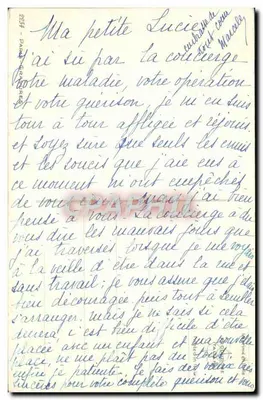 Ma petite Lucie
J'ai su par la concierge
votre maladie, votre opération
et votre guerison, je m'en suis
tour à tour affligée et réjouie
et soyez sure que seuls les ennuis
et les soucis que j'aie eus à
ce moment m'ont empêchée
de vous j'ai bien
pensé à vous. La concierge a du
vous dire les mauvais jours que
j'ai traversés lorsque je me voyais
à la veille d'être dans la rue et
sans travail; je vous assure que j'étais
bien découragée puis tout a semblé
s'arranger. mais je ne sais si cela
durera c'est bien difficile d'être
placée avec un enfant et ma nouvelle
place, ne me plaît pas du tout
enfin je patiente. Je fais des vœux
sincères pour votre complète guérison et vous